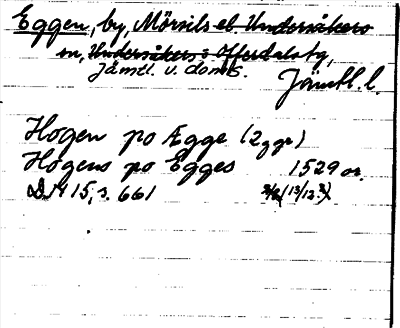 Eggen, by, Mörsils el. Undersåkers
sn, Undersåkers o Offerdals tg,
Jämtl. v. doms.
Jämtl. l.
Hogen po Ægge (2 ggr)
Hogens po Egges 1529 or.
DN 15, s. 661 (13/12